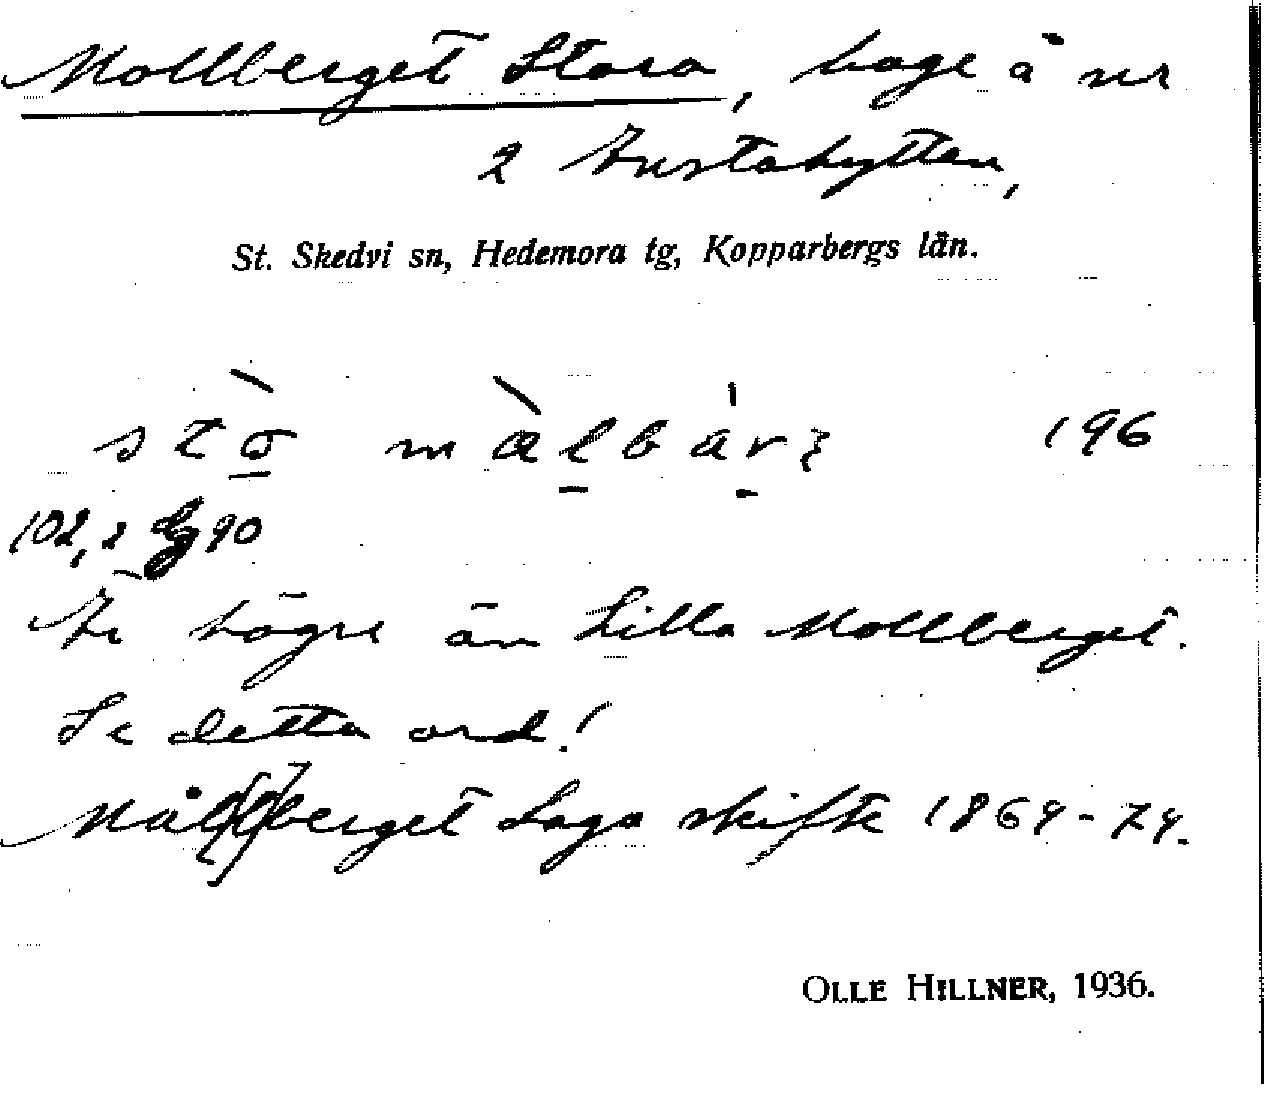 Mollberget Stora, hage å nr
2 Justahyttan,
St. Skedvi sn, Hedemora tg, Kopparbergs län.
196
102,2 90
Är högre än Lilla Mollberget.
Se detta ord!
Mål(l)berget Laga skifte 1864-74.
OLLE HILLNER, 1936.